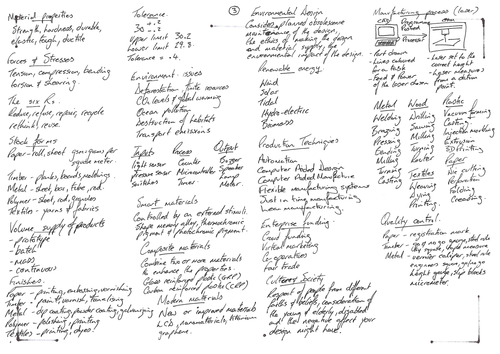 Material properties
Strength, hardness, durable,
elastic, tough, ductile
Forces & Stresses
Tension, compression, bending
torsion & shearing.
The six Rs.
Reduce, refuse, repair, recycle
rethink, reuse.
Stock forms
Paper - roll, sheet gsm grams per
square meter.
Timber - planks, boards, moldings
Metal - sheet, bar, tube, rod.
Polymer - sheet, rod, granules
Textiles - yarns & fabrics
Volume supply of products
- prototype
- batch
- mass
- continuous
Finishes.
Paper - printing, embossing, varnishing
Timber - paint, varnish, tanalising
Metal - dip coating, powder coating, galvanizing
Polymer - polishing, printing
Textiles - printing, dyes.
Tolerance.
+ 2
30 - .2
Upper limit 30.2
Lower limit 29.8
Tolerance = .4.
Environment issues
Deforestation finite sources
CO2 levels & global warming
Ocean pollution
Destruction of habitats
Transport emissions
Inputs Process Output
light sensor Counter Buzzer
pressure sensor Microcontroller Speaker
switches Timer Lamp
Motor.
Smart materials
Controlled by an external stimuli.
Shape memory alloy, thermochromic
pigment & photochromic pigment.
Composite materials
Combine two or more materials
to enhance the properties.
Glass reinforced plastic (GRP)
Carbon reinforced plastic (CRP)
Modern materials
New or improved materials
LCD, nanomaterials, titanium
graphene.
3
Environmental Design
Consider planned obsolescence
maintenance of the design,
the ethics of making the design
and material supply, the
environmental impact of the design.
Renewable energy.
Wind
Solar
Tidal
Hydro-electric
Biomass
Production Techniques
Automation
Computer Aided Design
Computer Aided Manufacture
Flexible manufacturing systems
Just in time manufacturing
Lean manufacturing.
Enterprise funding.
Crowd funding
Virtual marketing
Co-operatives
Fair trade
Culture & Society
Respect of people from different
faiths & beliefs, consideration of
the young & elderly, disabled
and that negative affect your
design might have.
Manufacturing process (laser)
- Part drawn
- Lines coloured
for a task
- Feed & Power
of the laser chosen
- Laser set to the
correct height
- Laser measures
from a datum
point.
Metal Wood Plastic
Welding Drilling Vacuum forming
Brazing Sawing Casting
Pressing Milling Injection molding
Casting Turning Extrusion
Milling Router 3D Printing
Turning Textiles Paper
Casting Weaving Die cutting
Dying Perforating
Printing Folding
Creasing.
Quality control.
Paper - registration mark
Timber - go & no go gauge, steel rule
Metal - vernier caliper, steel rule
engineers square, plug gauge
height gauge, slip blocks
micrometer